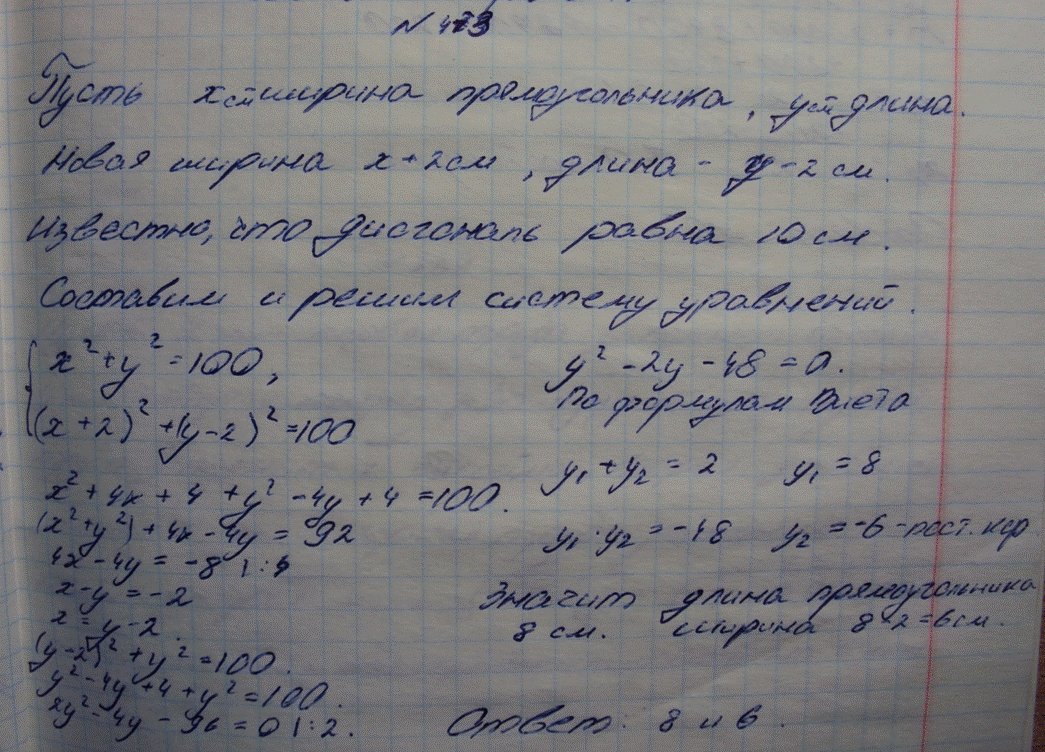 N 473
Пусть x см ширина прямоугольника, y см длина.
Новая ширина x + 2 см, длина - y - 2 см.
Известно, что диагональ равна 10 см.
Составим и решим систему уравнений.
x² + y² = 100,
(x + 2)² + (y - 2)² = 100
x² + 4x + 4 + y² - 4y + 4 = 100.
(x² + y²) + 4x - 4y = 92
4x - 4y = -8 | : 4
x - y = -2
x = y - 2.
(y - 2)² + y² = 100.
y² - 4y + 4 + y² = 100.
2y² - 4y - 96 = 0 | : 2.
y² - 2y - 48 = 0.
По формулам Виета
y₁ + y₂ = 2 y₁ = 8
y₁ · y₂ = -48 y₂ = -6 - пост. кор
Значит длина прямоугольника
8 см. ширина 8 - 2 = 6 см.
Ответ: 8 и 6.